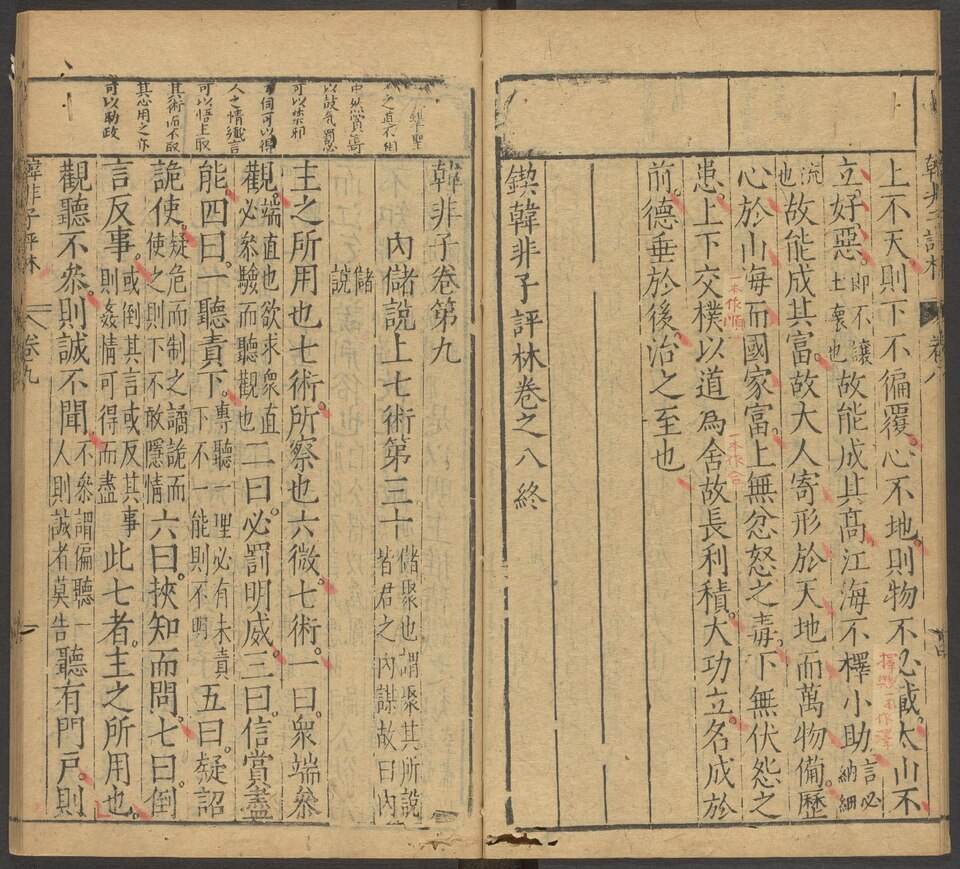 上不天則下不徧覆心不地則物不必載太山不
立好惡即不讓土壤也故能成其髙江海不擇小助言必納細
流也故能成其富故大人寄形於天地而萬物備歷
心於山海而國家富上無忿怒之毒下無伏怨之
患上下交樸以道為舍故長利積大功立名成於
前德垂於後治之至也
鍥韓非子評林卷之八終
一本作順
一本作舍
韓非子評林
卷八
韓非子卷第九
內儲說上七術第三十儲聚也謂聚其所說皆君之內謀故曰內
儲說
主之所用也七術所察也六微七術一曰衆端參
觀端直也欲求衆直必參驗而聽觀也二曰必罰明威三曰信賞盡
能四曰一聽責下專聽一理必有未責下不一能則不明五曰疑詔
詭使疑危而制之譎詭而使之則下不敢隱情六曰挾知而問七曰倒
言反事或倒其言或反其事則姦情可得而盡此七者主之所用也
觀聽不參則誠不聞不參謂偏聽一人則誠者莫告聽有門戶則
可以禁邪
人之情殲言
可以悟上取
其術而不取
其心用之亦
可以助政
韓非子評林
卷九